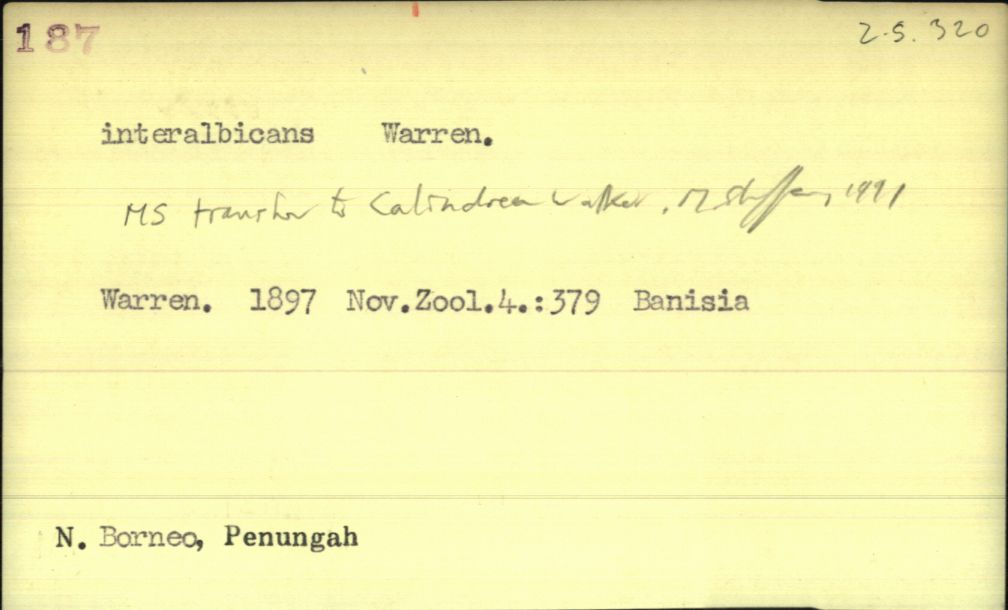 187
2.S. 320
interalbicans Warren.
MS transfer to Calindoea Walker. M. Shaffer, 1991
Warren. 1897 Nov.Zool.4.:379 Banisia
N. Borneo, Penungah